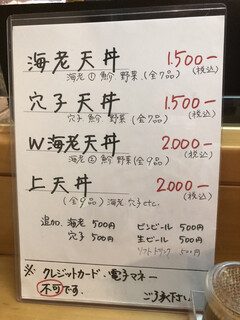 海老天丼 1.500-
海老① 魚介 野菜 (全7品) (税込)
穴子天丼 1.500-
穴子 魚介 野菜 (全7品) (税込)
W海老天丼 2000-
海老② 魚介 野菜(全9品) (税込)
上天丼 2000-
(全9品) 海老 穴子etc. (税込)
追加 海老 500円 ビンビール 500円
穴子 500円 生ビール 500円
ソフトドリンク 300円
※ クレジットカード・電子マネー
不可です。
ご了承下さい